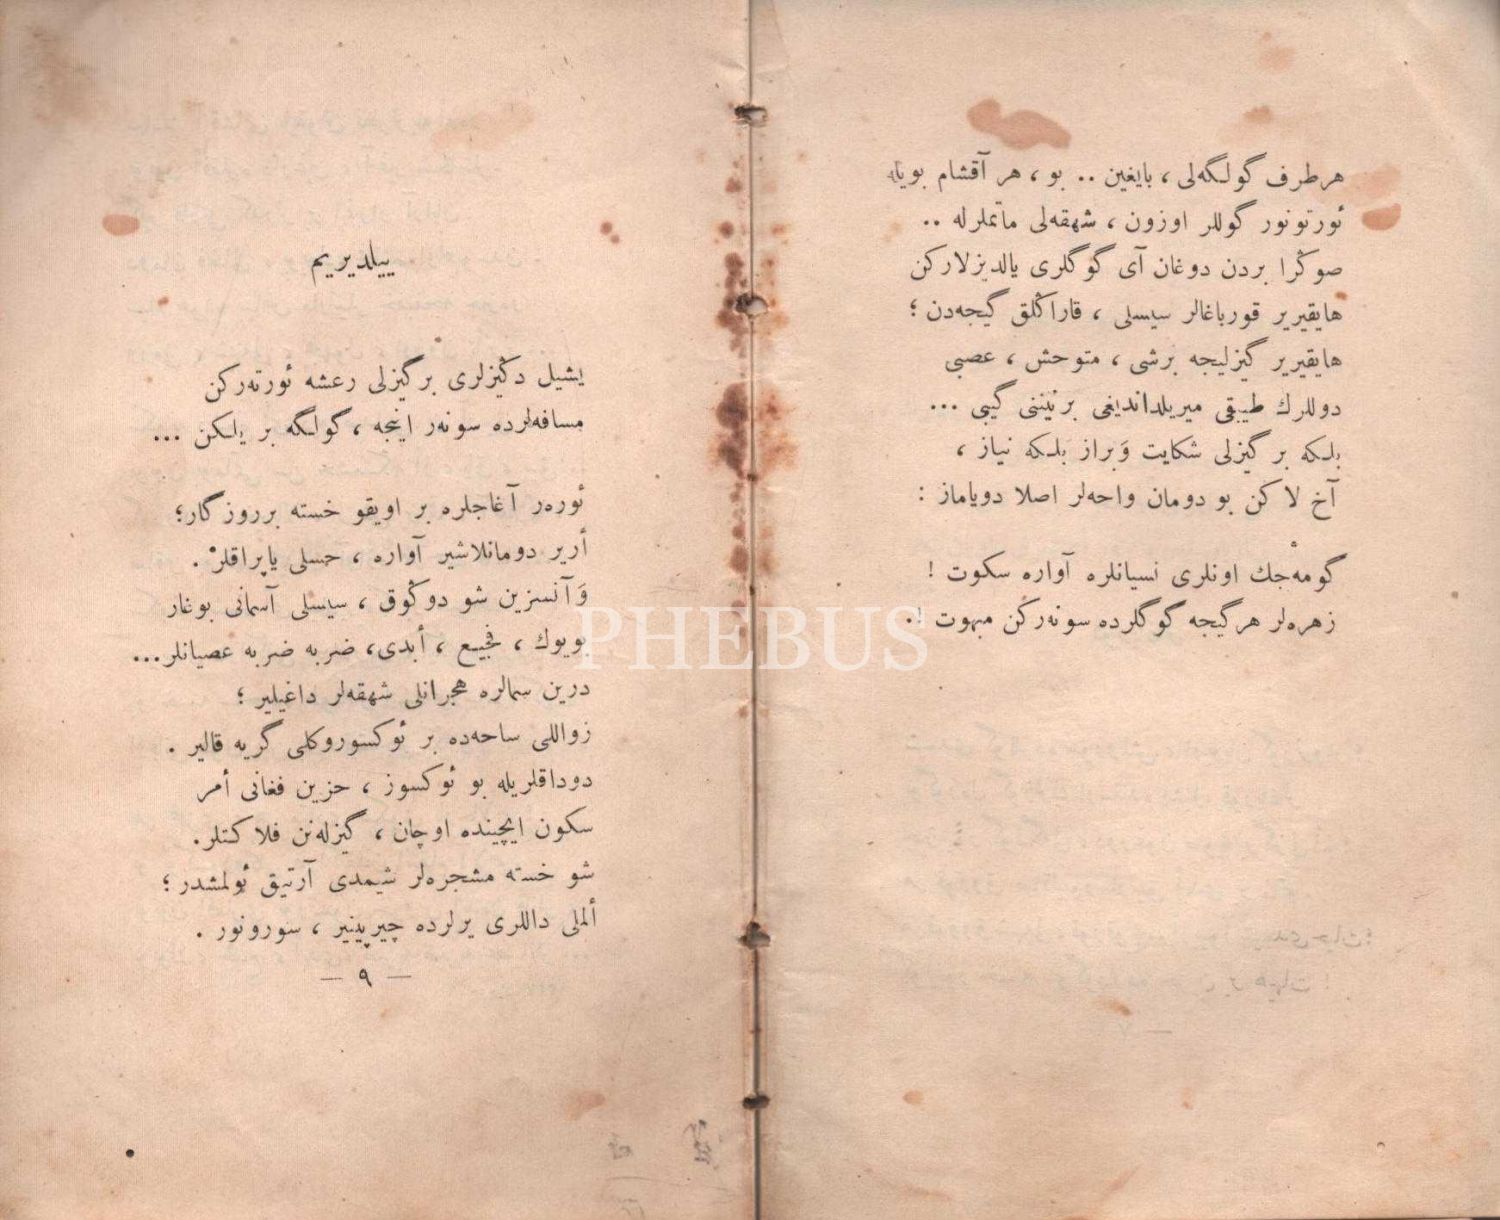 هرطرف گولگه‌لی ، بایغین .. بو ، هر آقشام بویله
ئورتونور گوللر اوزون ، شهقه‌لی ماتملرله ..
صوڭرا بردن دوغان آی گوگلری یالدیزلارکن
هایقیریر قورباغالر سیسلی ، قاراڭلق گیجه‌دن ؛
هایقیریر گیزلیجه برشی ، متوحش ، عصبی
دوللرك طیبقی میریلداندیغی برنیننی گیبی ...
بلکه بر گیزلی شکایت وَبراز بلکه نیاز ،
آخ لاکن بو دومان واحه‌لر اصلا دویاماز :
گومه‌جك اونلری نسیانلره آواره سکوت !
زهره‌لر هرگیجه گوگلرده سونه‌رکن مبهوت !.
ییلدیریم
یشیل دڭیزلری برگیزلی رعشه ئورته‌رکن
مسافه‌لرده سونه‌ر اینجه ، گولگه بر یلکن ...
ئوره‌ر آغاجلره بر اویقو خسته برروزگار؛
أریر دومانلاشیر آواره ، حسلی یاپراقلر .
وَآنسزین شو دوڭوق ، سیسلی آسمانی بوغار
بویوك ، فجیع ، أبدی، ضربه ضربه عصیانلر...
درین سمالره هجرانلی شهقه‌لر داغیلیر ؛
زواللی ساحه‌ده بر ئوکسوروکلی گریه قالیر .
دوداقلریله بو ئوکسوز ، حزین فغانی أمر
سکون ایچینده اوچان ، گیزله‌نن فلاکتلر.
شو خسته مشجره‌لر شیمدی آرتیق ئولمشدر ؛
ألملی داللری یرلرده چیرپینیر ، سورونور .
— ٩ —
PHEBUS